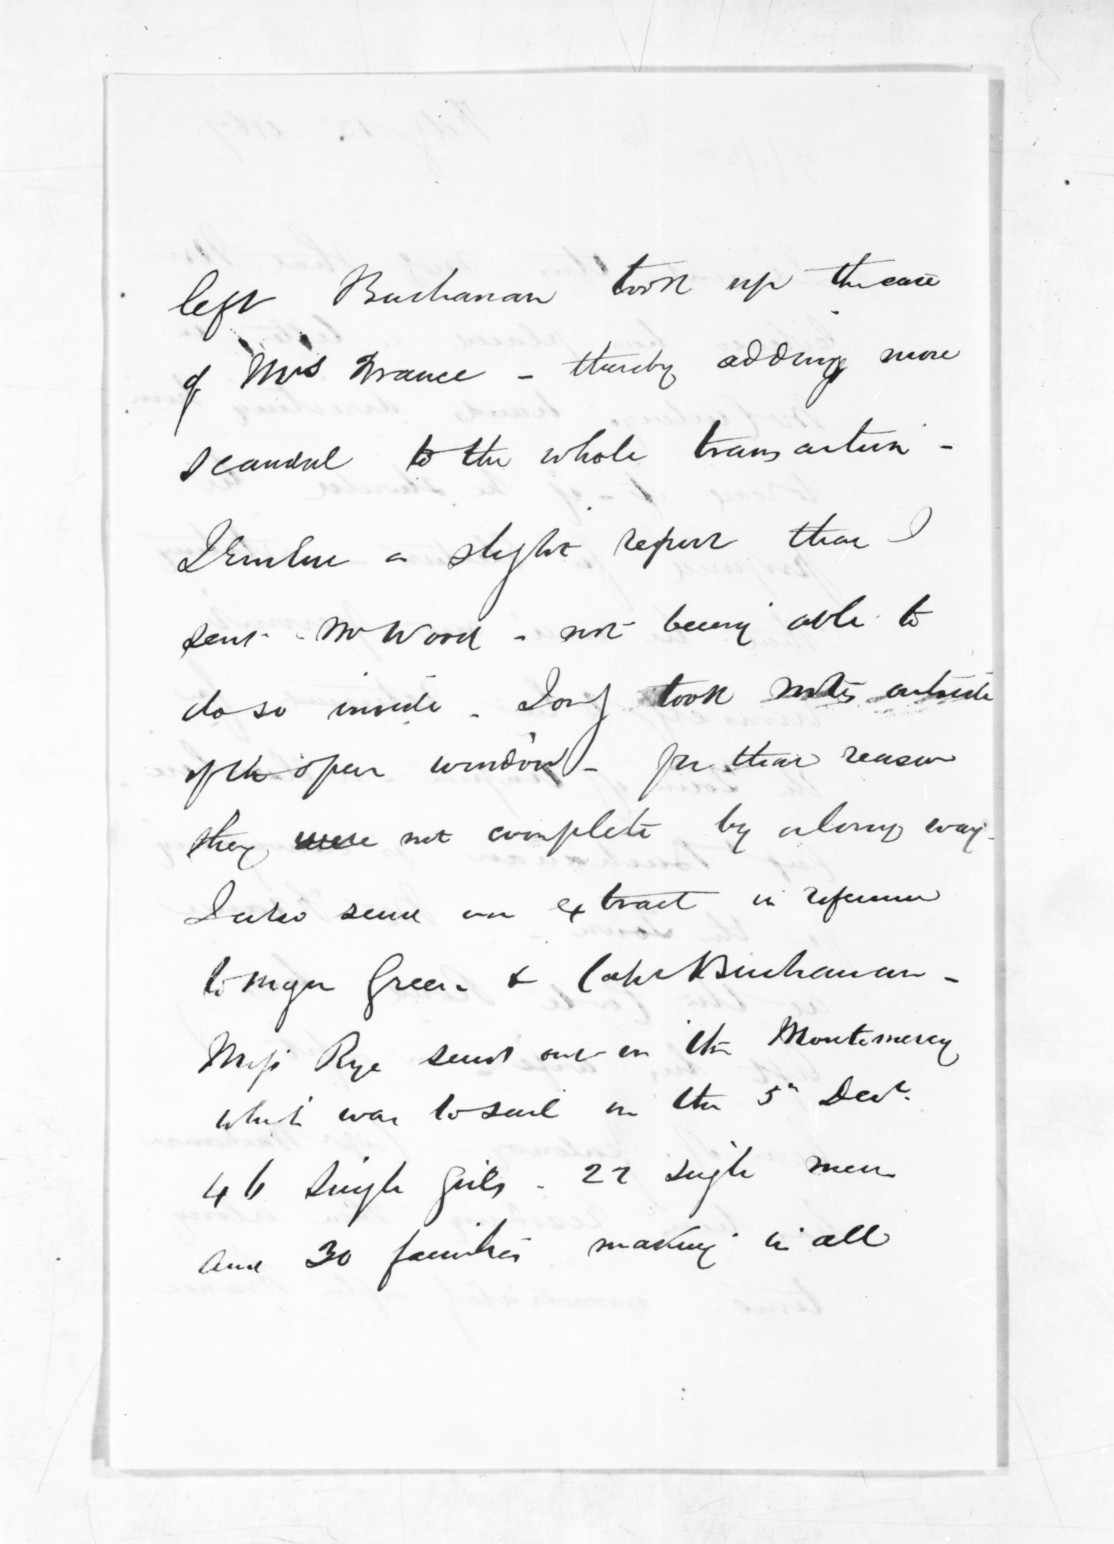 left Buchanan took up the case
of Mrs France - thereby adding more
scandal to the whole transaction -
I Enclose a slight report that I
sent Mr Wood - not being able to
do so inside - I only took notes outside
of the open window - for that reason
they were not complete by a long way -
I also send an extract in reference
to Major Green & Capt Buchanan -
Miss Rye sends out in the Montmorency
which was to sail on the 5th Decr.
46 Single Girls - 22 single men
and 30 families making in all